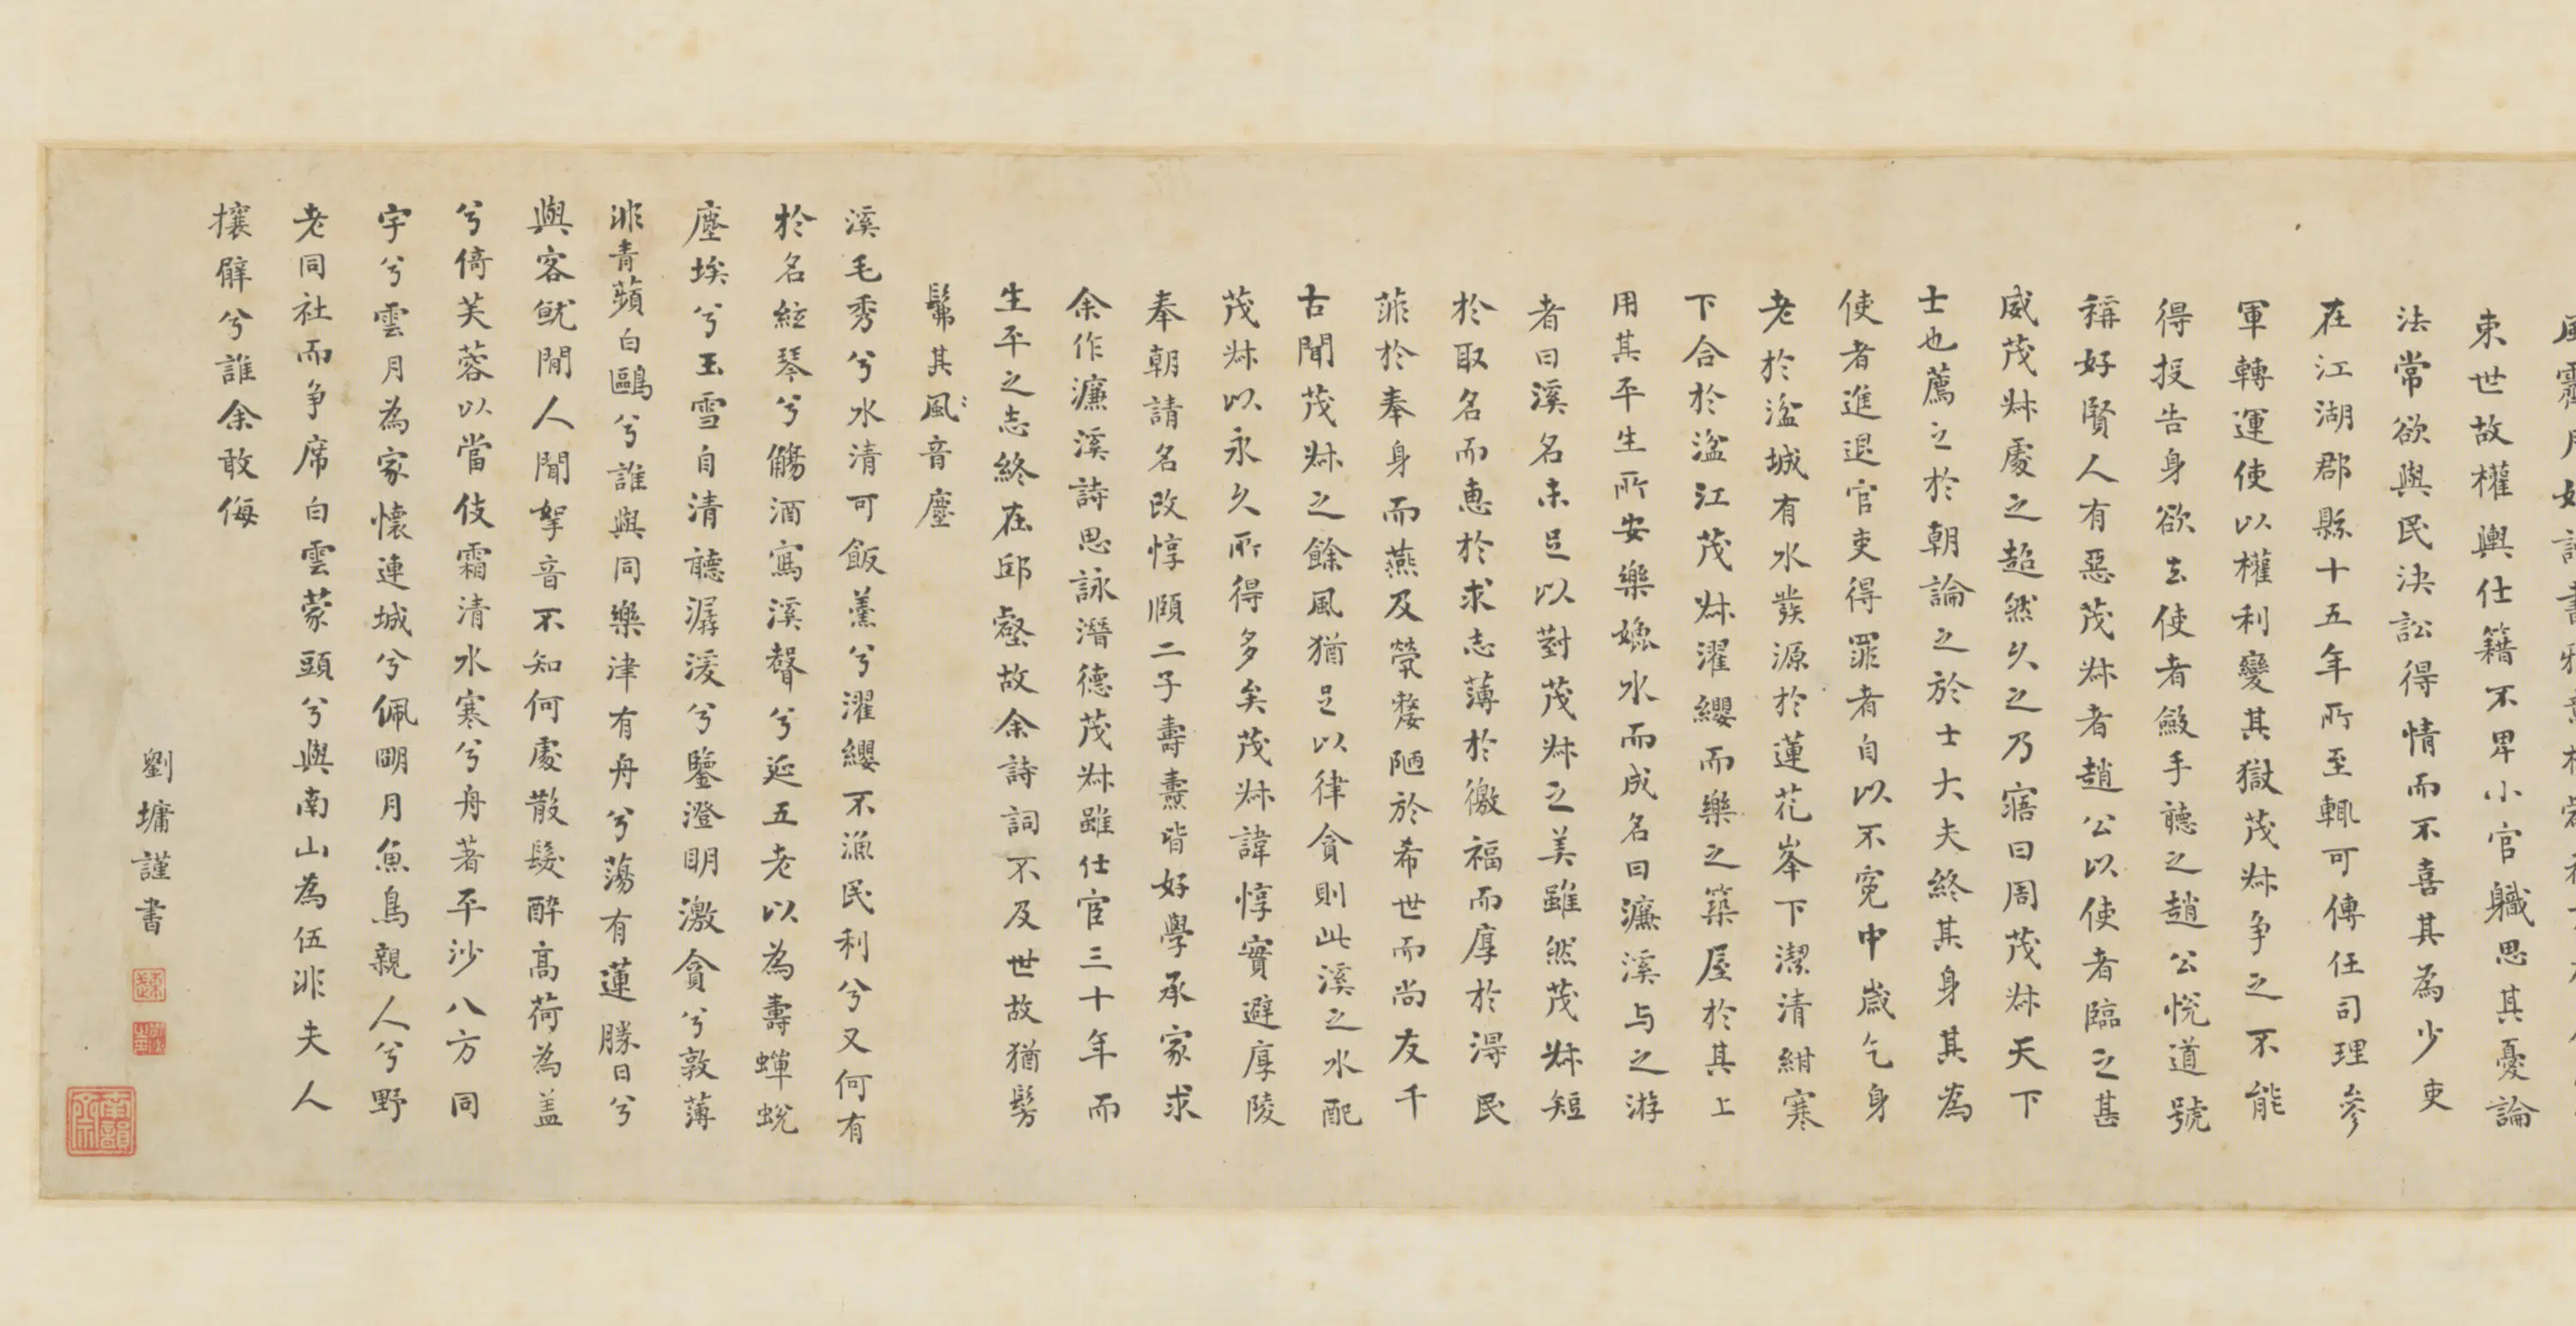 束世故權輿仕籍不卑小官職思其憂論
法常欲與民決訟得情而不喜其為少吏
在江湖郡縣十五年所至輒可傳任司理參
軍轉運使以權利變其獄茂叔爭之不能
得投告身欲去使者斂手聽之趙公悅道號
稱好賢人有惡茂叔者趙公以使者臨之甚
威茂叔處之超然久之乃寤曰周茂叔天下
士也薦之於朝論之於士大夫終其身其為
使者進退官吏得罪者自以不寃中歲乞身
老於湓城有水發源於蓮花峯下潔清紺寒
下合於湓江茂叔濯纓而樂之築屋於其上
用其平生所安樂媲水而成名曰濂溪与之游
者曰溪名未足以對茂叔之美雖然茂叔短
於取名而惠於求志薄於徼福而厚於得民
菲於奉身而燕及煢嫠陋於希世而尚友千
古聞茂叔之餘風猶足以律貪則此溪之水配
茂叔以永久所得多矣茂叔諱惇實避厚陵
奉朝請名改惇頤二子壽燾皆好學承家求
余作濂溪詩思詠潛德茂叔雖仕宦三十年而
生平之志終在邱壑故余詩詞不及世故猶髣
髴其風音塵
溪毛秀兮水清可飯羹兮濯纓不漁民利兮又何有
於名絃琴兮觴酒寫溪聲兮延五老以為壽蟬蛻
塵埃兮玉雪自清聽潺湲兮鑒澄明激貪兮敦薄
非青蘋白鷗兮誰與同樂津有舟兮蕩有蓮勝日兮
與客就閒人聞拏音不知何處散髮醉高荷為蓋
兮倚芙蓉以當伎霜清水寒兮舟著平沙八方同
宇兮雲月為家懷連城兮佩明月魚鳥親人兮野
老同社而爭席白雲蒙頭兮與南山為伍非夫人
攘臂兮誰余敢侮
劉墉謹書